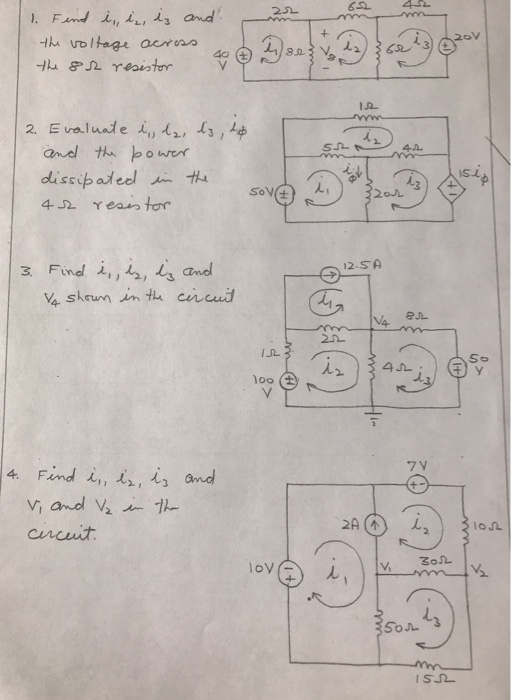 1. Find i₁, i₂, i₃ and
the voltage across
the 8Ω resistor
2Ω 6Ω 4Ω
40 V i₁ 8Ω + V₈ - i₂ 6Ω i₃ 20V
2. Evaluate i₁, i₂, i₃, iϕ
and the power
dissipated in the
4Ω resistor
1Ω
i₂
5Ω 4Ω
50V i₁ iϕ 20Ω i₃ 15iϕ
3. Find i₁, i₂, i₃ and
V₄ shown in the circuit
12.5A
i₁
V₄ 8Ω
2Ω
1Ω i₂ 4Ω i₃ 50 V
100 V
4. Find i₁, i₂, i₃ and
V₁ and V₂ in the
circuit.
7V
+-
2A i₂ 10Ω
10V i₁ V₁ 30Ω V₂
50Ω i₃
15Ω